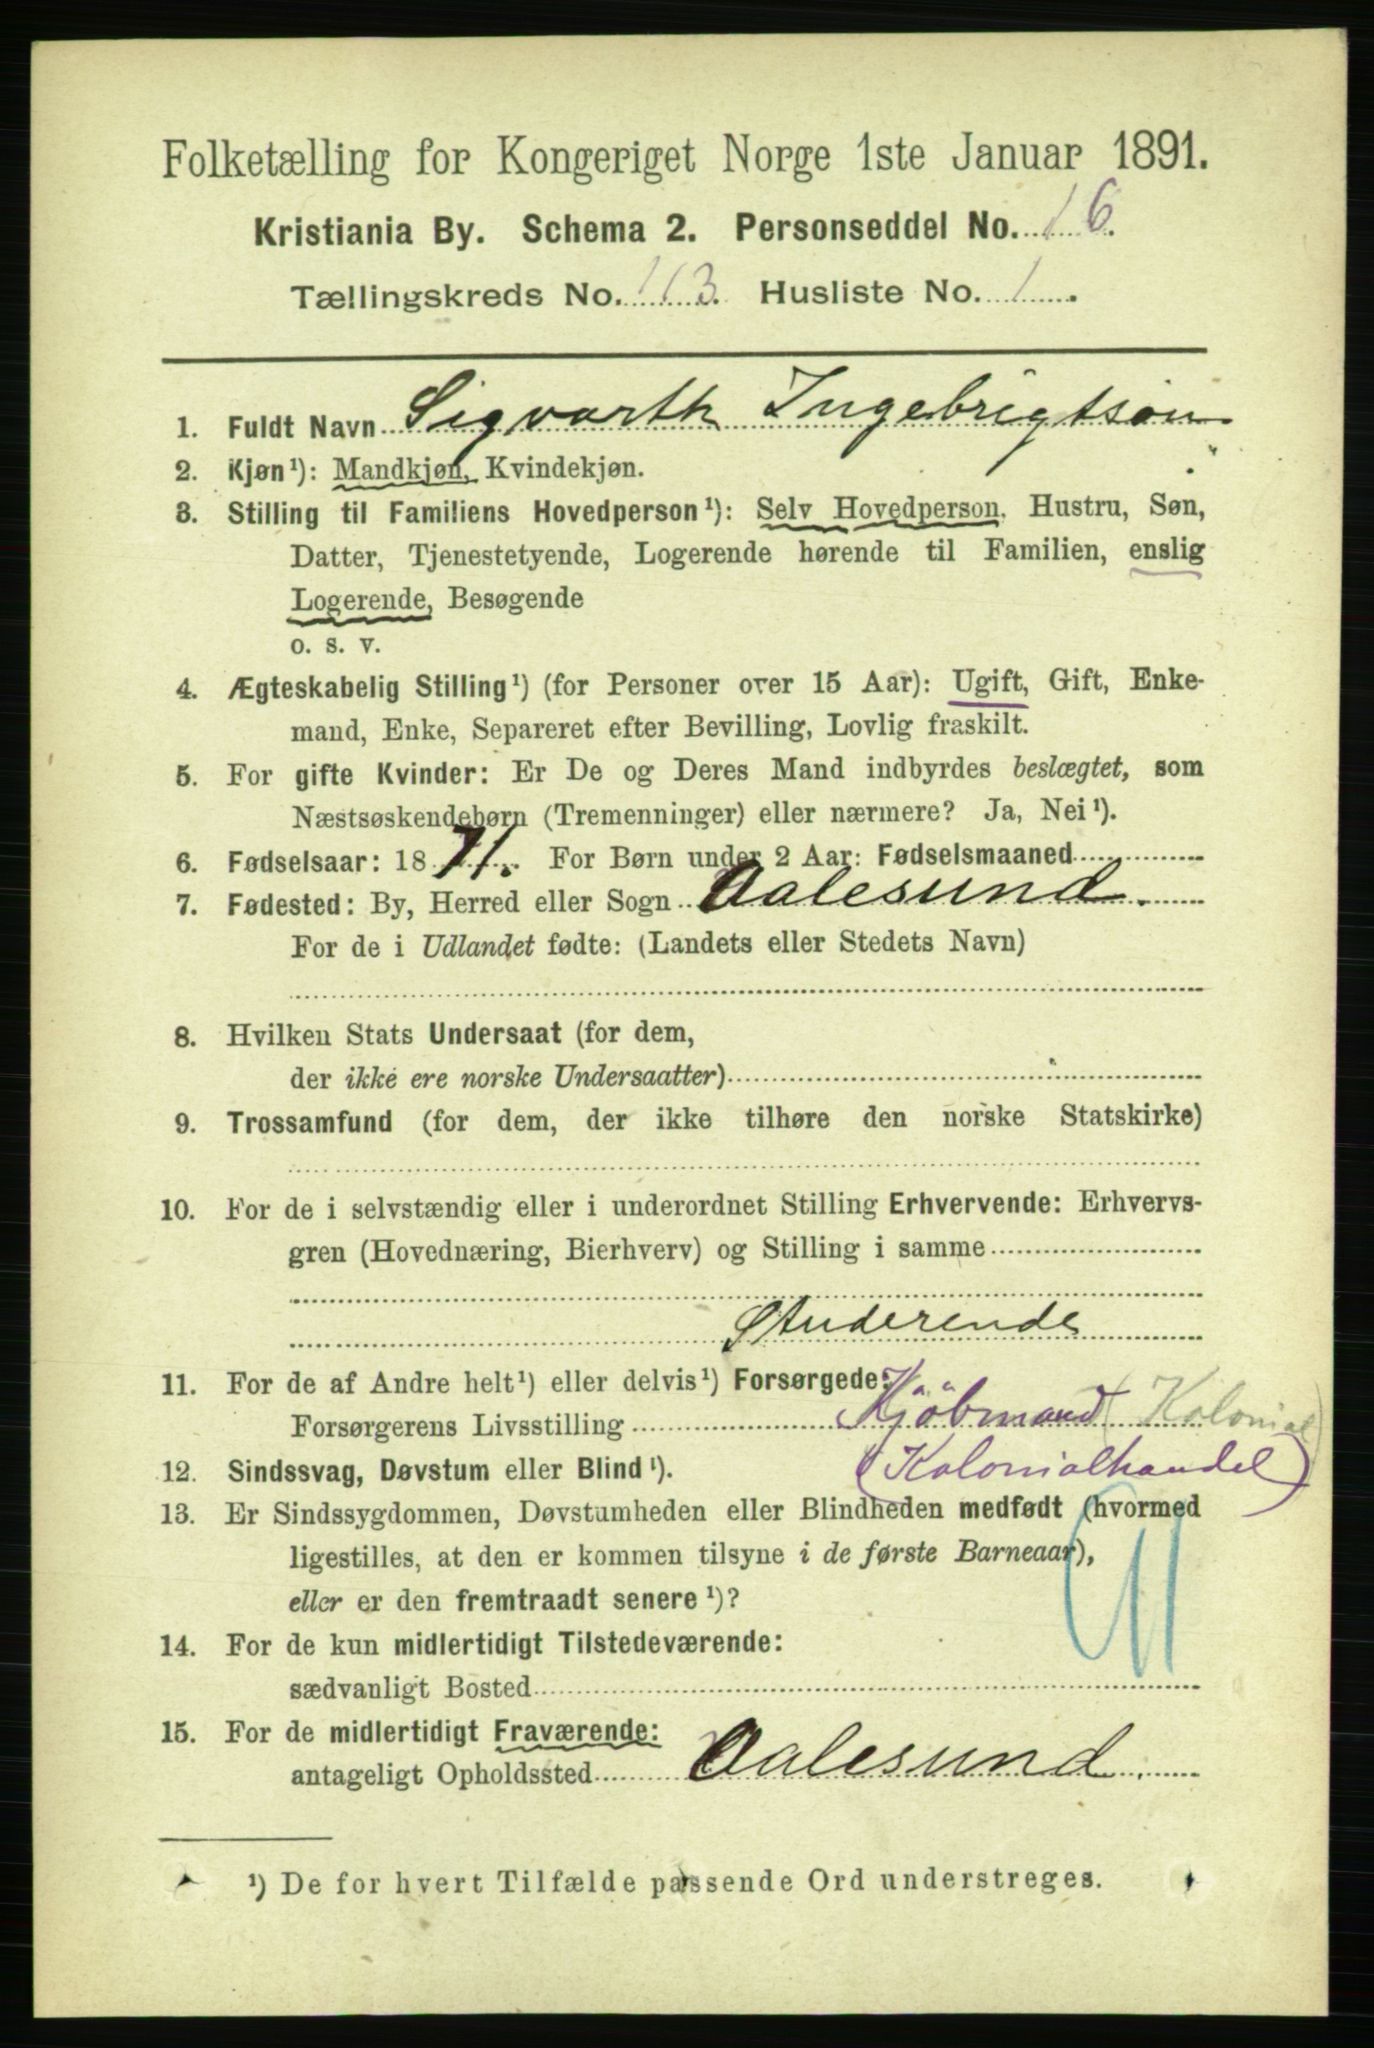 Folketælling for Kongeriget Norge 1ste Januar 1891.
Kristiania By. Schema 2. Personseddel No. 16.
Tællingskreds No. 113. Husliste No. 1.
1. Fuldt Navn Sigvarth Ingebrigtson
2. Kjøn¹): Mandkjøn, Kvindekjøn.
3. Stilling til Familiens Hovedperson¹): Selv Hovedperson, Hustru, Søn,
Datter, Tjenestetyende, Logerende hørende til Familien, enslig
Logerende, Besøgende
o. s. v.
4. Ægteskabelig Stilling¹) (for Personer over 15 Aar): Ugift, Gift, Enke-
mand, Enke, Separeret efter Bevilling, Lovlig fraskilt.
5. For gifte Kvinder: Er De og Deres Mand indbyrdes beslægtet, som
Næstsøskendebørn (Tremenninger) eller nærmere? Ja, Nei¹).
6. Fødselsaar: 1871. For Børn under 2 Aar: Fødselsmaaned
7. Fødested: By, Herred eller Sogn Aalesund.
For de i Udlandet fødte: (Landets eller Stedets Navn)
8. Hvilken Stats Undersaat (for dem,
der ikke ere norske Undersaatter)
9. Trossamfund (for dem, der ikke tilhøre den norske Statskirke)
10. For de i selvstændig eller i underordnet Stilling Erhvervende: Erhvervs-
gren (Hovednæring, Bierhverv) og Stilling i samme
Studerende
11. For de af Andre helt¹) eller delvis¹) Forsørgede:
Forsørgerens Livsstilling Kjöbmand (Kolonial)
12. Sindssvag, Døvstum eller Blind¹). (Kolonialhandel)
13. Er Sindssygdommen, Døvstumheden eller Blindheden medfødt (hvormed
ligestilles, at den er kommen tilsyne i de første Barneaar),
eller er den fremtraadt senere¹)?
14. For de kun midlertidigt Tilstedeværende:
sædvanligt Bosted
15. For de midlertidigt Fraværende:
antageligt Opholdssted Aalesund
¹) De for hvert Tilfælde passende Ord understreges.